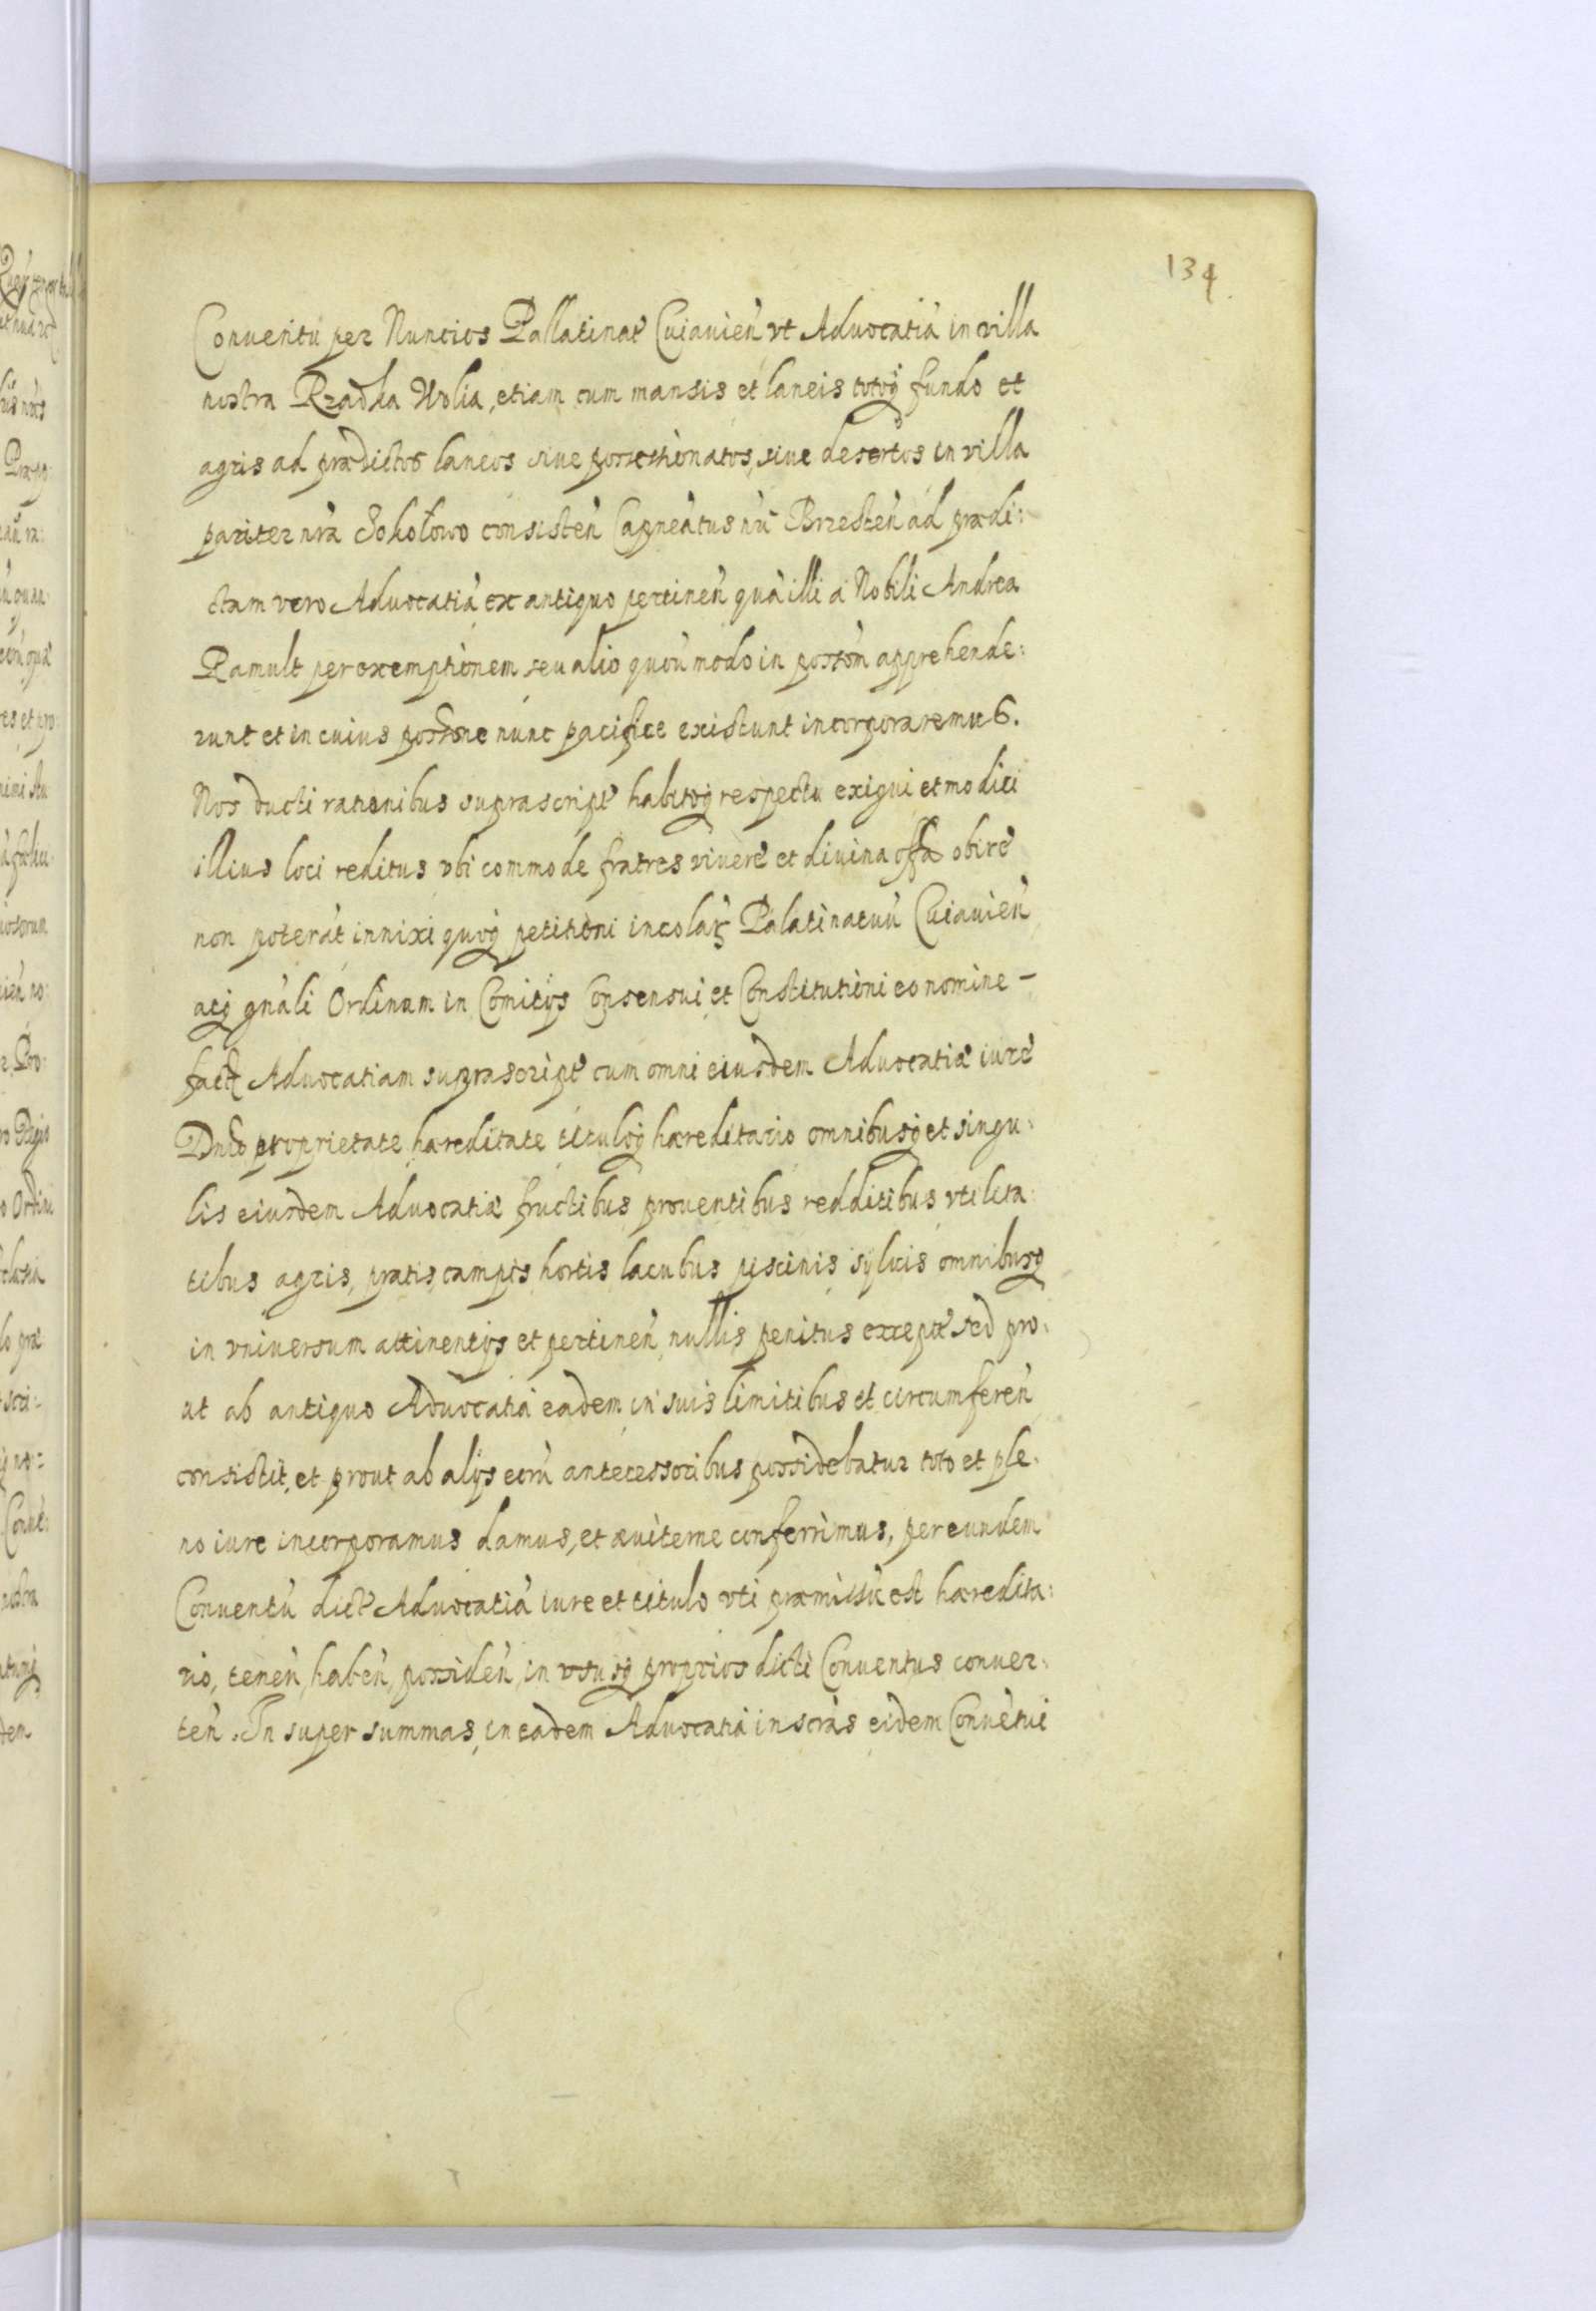 134
Conventū per Nuncios Pallatinat Cuiavień vt Advocatiā in villa
nostra Rzadka Wolia, etiam cum mansis et laneis totoq́ fundo et
agris ad prædictos laneos siue possessionatos, siue desertos in villa
pariter nrā Sokołowo consisteń Capneatus nri Brzesteń ad prædi:
ctam vero Advocatiā ex antiquo pertineń quā illi a Nobili Andrea
Ramult per exemptionem seu alio quoū modo in possōm apprehende:
runt et in cuius possone nunc pacifice existunt incorporaremus.
Nos ducti rationibus suprascript habitoq́ respectu exigui et modici
illius loci reditus vbi commode fratres vivere et divina offa obire
non poterāt innixi quoq́ petitioni incolaꝝ Palatinatuū Cuiavień
atq́ gnāli Ordinum in Comitijs Consensui et Constitutioni eo nomine –
factæ Advocatiam suprascript cum omni eiusdem Advocatiæ iure
Dnīo proprietate hæreditate tituloq́ hæreditario omnibusq́ et singu:
lis eiusdem Advocatiæ fructibus proventibus redditibus vtilita:
tibus agris, pratis, campis hortis, lacubus piscinis, sylvis omnibusq́
in vniversum attinentijs et pertineń nullis penitus except sed pro:
ut ab antiquo Advocatia eadem in suis limitibus et circumfereń
consistit, et prout ab alijs eorū antecessoribus possidebatur toto et ple:
no iure incorporamus damus, et æviterne conferrimus, per eundem
Conventū dict Advocatiā iure et titulo vti præmissū est hæredita:
rio, teneń, habeń, possideń, in vsusq́ proprios dicti Conventus conver:
teń. In super summas, in eadem Advocatiā inscrās eidem Convētui